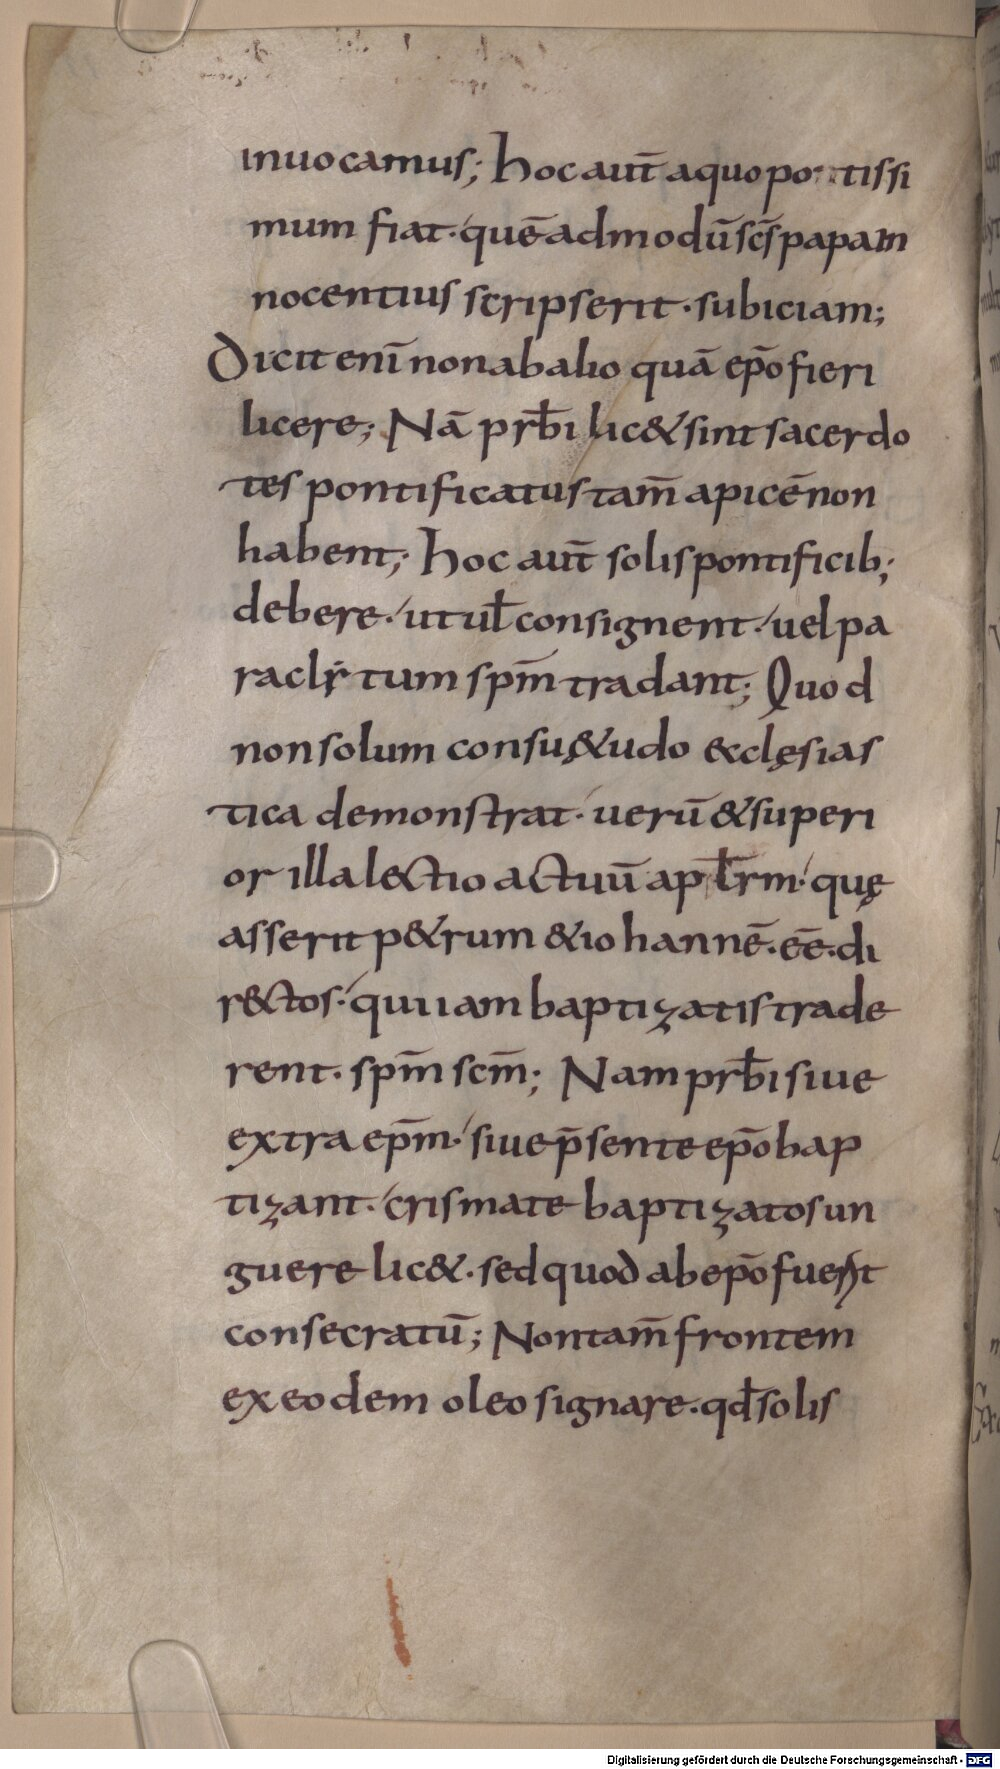 inuocamus; hoc aut̄ aquo po tissi
mum fiat· quē admodū sc̄s papa in
nocentius scripserit· subiciam;
Dicit enī non ab alio quā ep̄o fieri
licere; Nā prb̄i lic& sint sacerdo
tes pontificatus tam̄ apicē non
habent; hoc aut̄ solis pontificib;
debere· ut ul̄ consignent· uel pa
raclẏtum sp̄m tradant; Quod
non solum consuę&udo &clęsias
tica demonstrat· uerū & superi
or illa lectio actuū ap tl̄rm· quę
asserit p&rum & iohannē· eē· di
r&ctos· qui iam baptizatis trade
rent· sp̄m sc̄m; Nam prb̄i siue
extra ep̄m· siue p̄sente ep̄o bap
tizant· crismate baptizatos un
guere lic&· sed quod ab ep̄o fuerit
consecratū; Non tam̄ frontem
ex eodem oleo signare· qd̄ solis
Digitalisierung gefördert durch die Deutsche Forschungsgemeinschaft - DFG